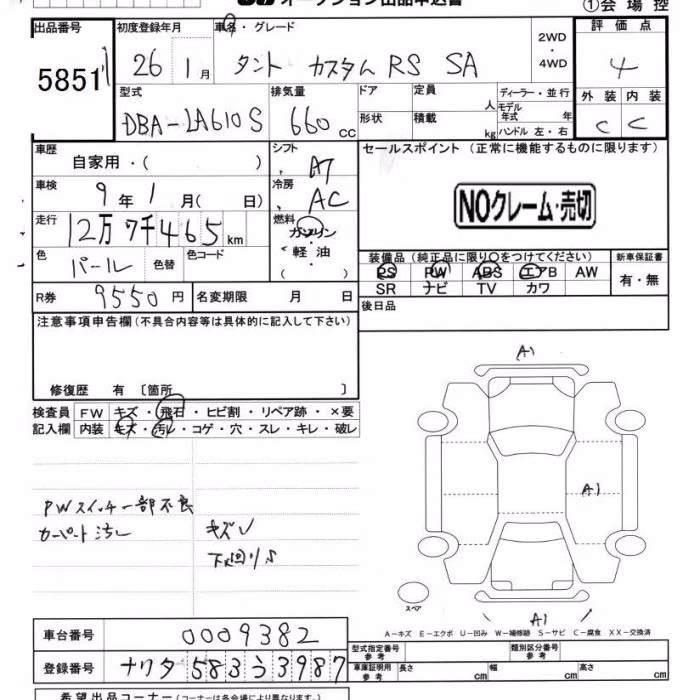 オークション出品申込書
①会場控
出品番号
5851
初度登録年月
26 1月
車名・グレード
タント カスタム RS SA
2WD
・
4WD
評価点
4
外装 内装
C C
型式
DBA-LA610S
排気量
660 cc
ドア
定員
人
形状
積載
kg
ディーラー・並行
モデル年式 年
ハンドル 左・右
車歴
自家用・( )
シフト
AT
車検
9年1月( 日)
冷房
AC
走行
12万7千465km
燃料
ガソリン
・
軽油
( )
色
パール
色替
色コード
R券
9550円
名変期限 月 日
セールスポイント (正常に機能するものに限ります)
NOクレーム・売切
装備品 (純正品に限り○をつけてください)
新車保証書
PS PW ABS エアB AW
SR ナビ TV カワ
有・無
後日品
注意事項申告欄 (不具合内容等は具体的に記入して下さい)
修復歴 有 〔箇所 〕
検査員記入欄
FW キズ・飛石・ヒビ割・リペア跡・×要
内装 キズ・汚レ・コゲ・穴・スレ・キレ・破レ
PWスイッチ一部不良
カーペット汚レ
キズレ
下回りS
A1
A1
A1
スペア
A-キズ E-エクボ U-凹み W-補修跡 S-サビ C-腐食 XX-交換済
車台番号
0009382
登録番号
ナリタ 583 う 3987
型式指定番号
参考
類別区分番号
参考
車庫証明用
参考
長さ cm
幅 cm
高さ cm
希望出品コーナー (コーナーは各会場により異なります。)